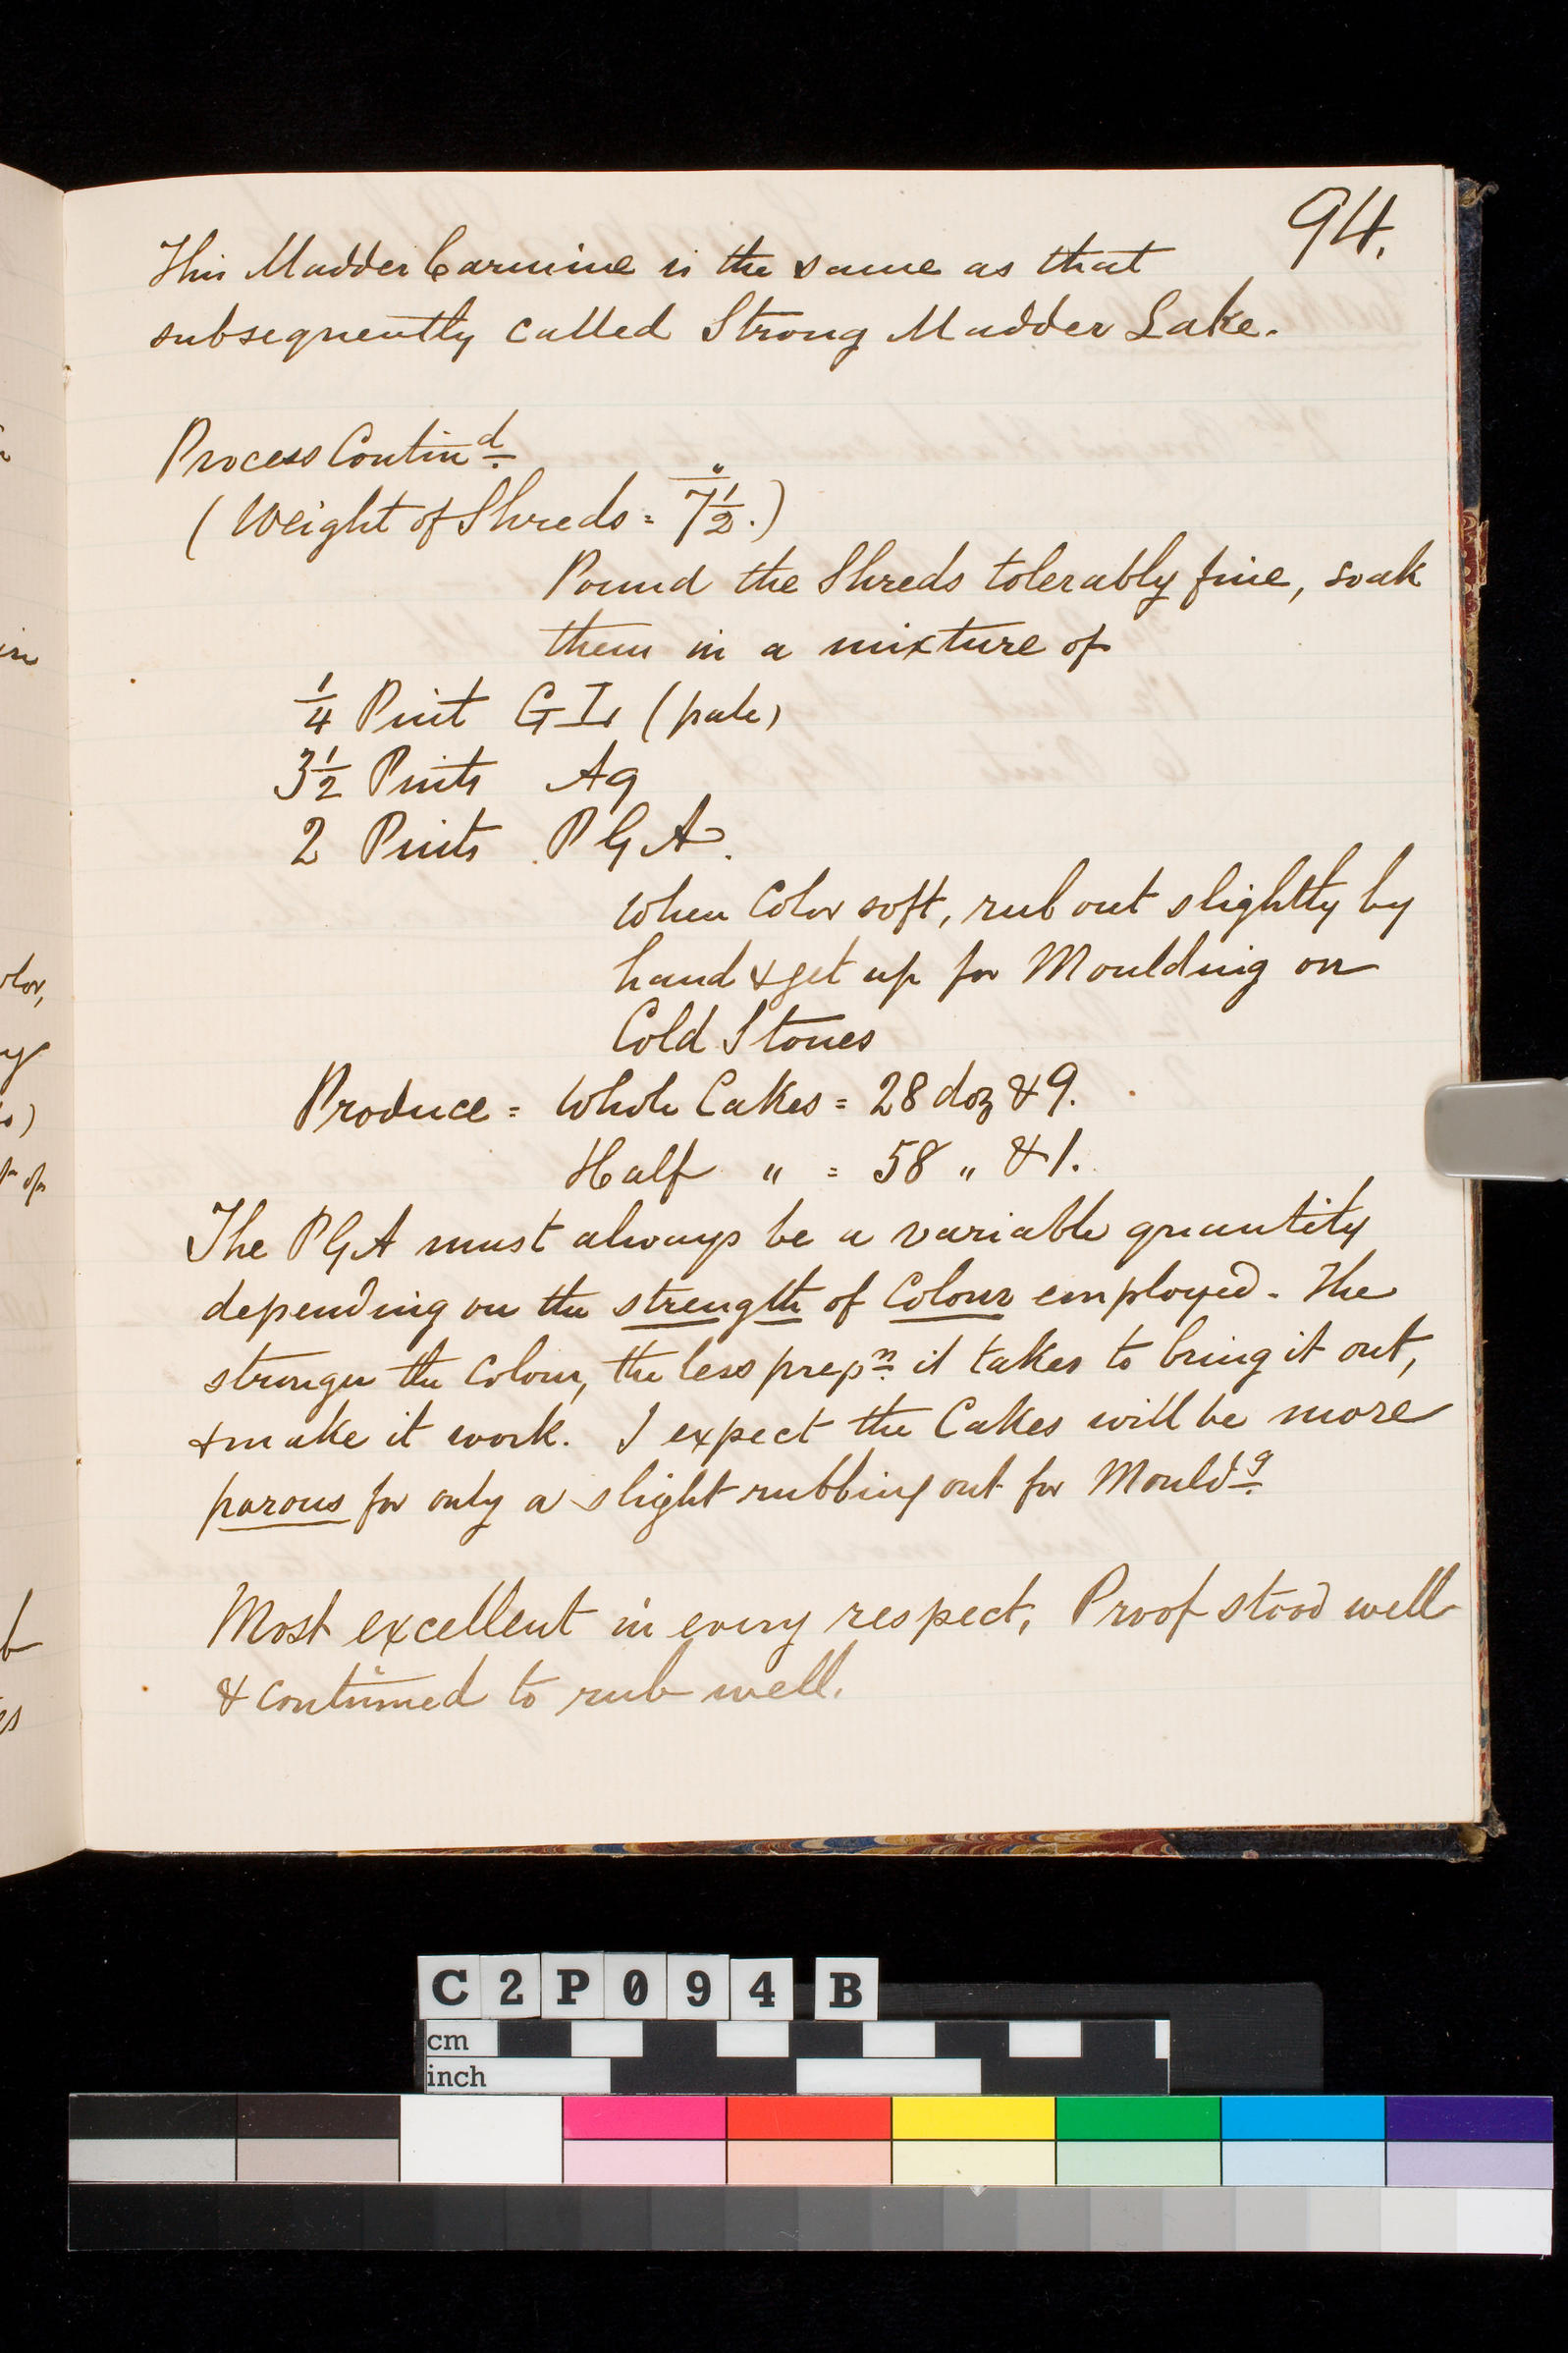 94.
This Madder Carmine is the same as that
subsequently called Strong Madder Lake.
Process Contind
(Weight of Shreds = 7 1/2.)
Pound the Shreds tolerably fine, soak
them in a mixture of
1/4 Pint G I (pale)
3 1/2 Pints Aq
2 Pints P G A.
When Color soft, rub out slightly by
hand & get up for Moulding on
Cold Stones
Produce = Whole Cakes = 28 doz & 9.
Half " = 58 " & 1.
The PGA must always be a variable quantity
depending on the strength of Colour employed. The
stronger the Colour, the less prepn it takes to bring it out,
& make it work. I expect the Cakes will be more
porous for only a slight rubbing out for Mouldg
Most excellent in every respect, Proof stood well
& continued to rub well.
olor,
C2P094 B
cm
inch